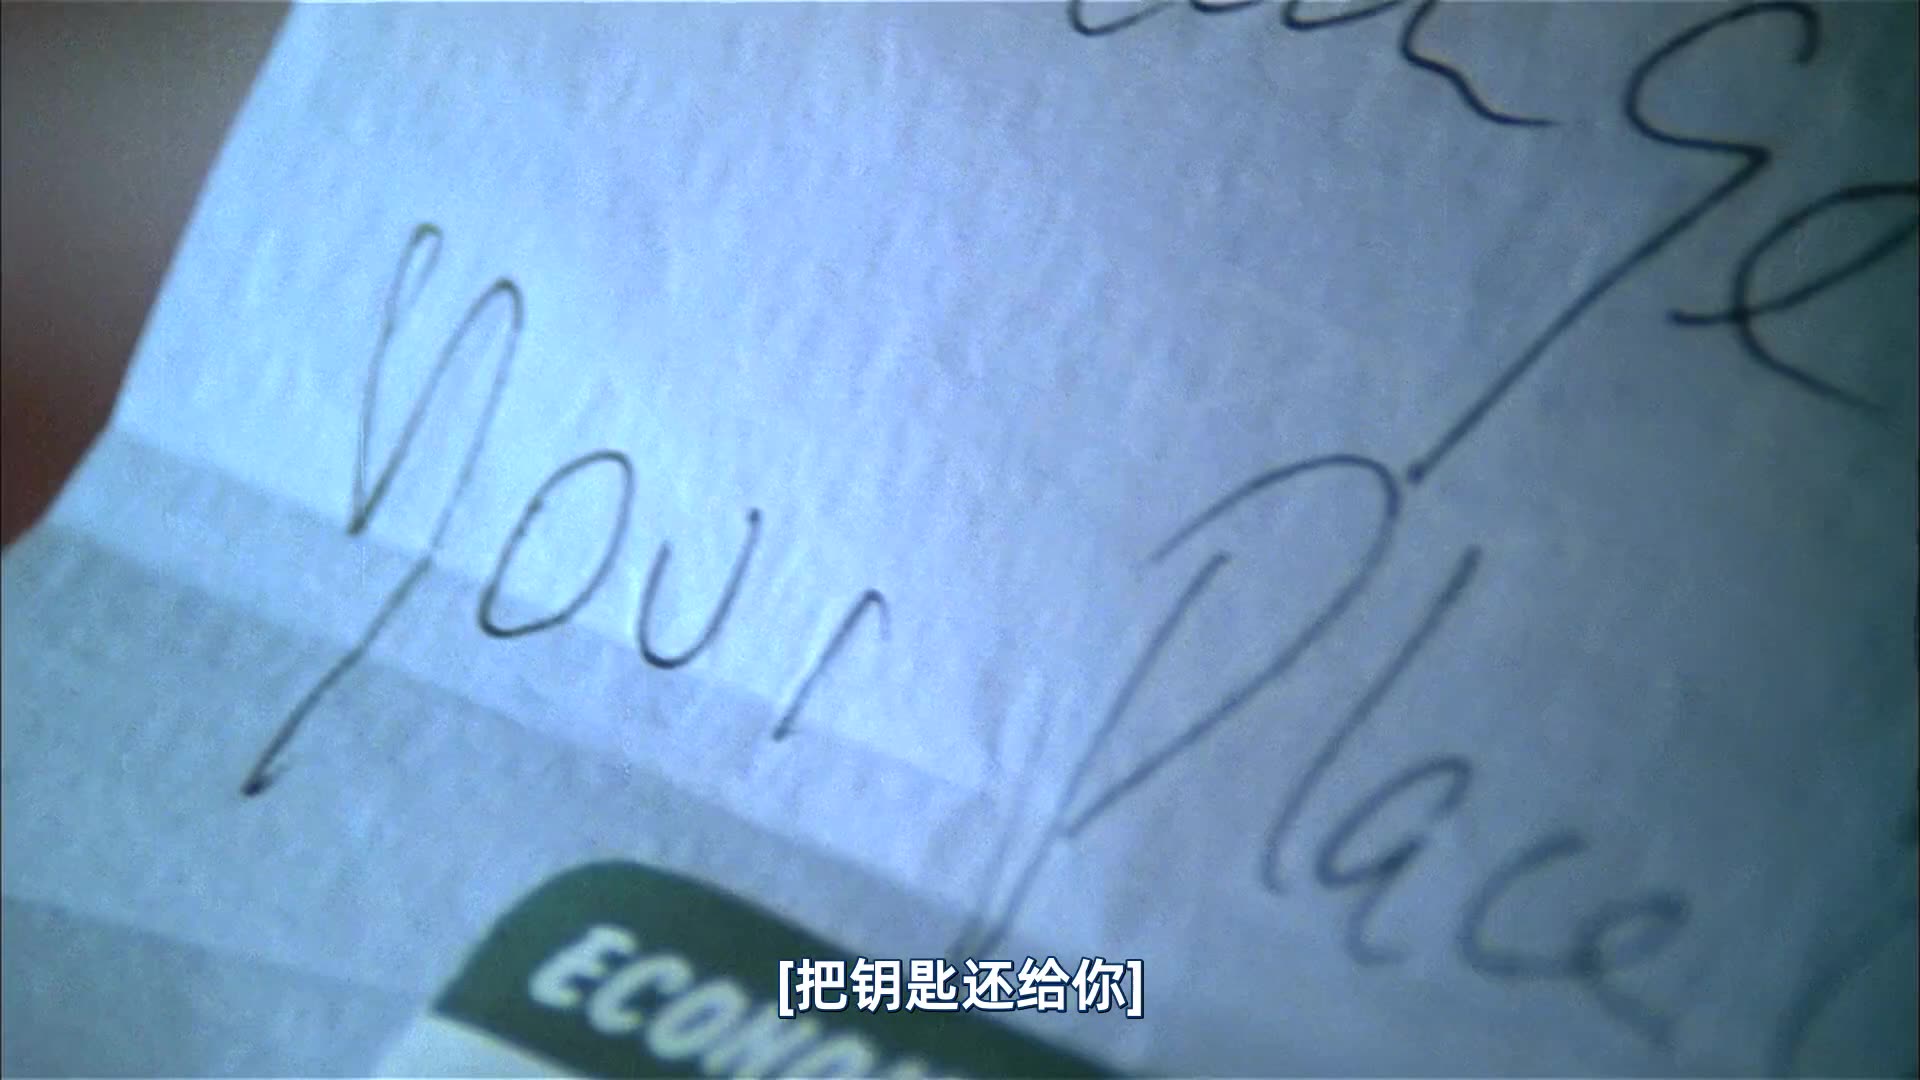 Your Place
ECONO
[把钥匙还给你]